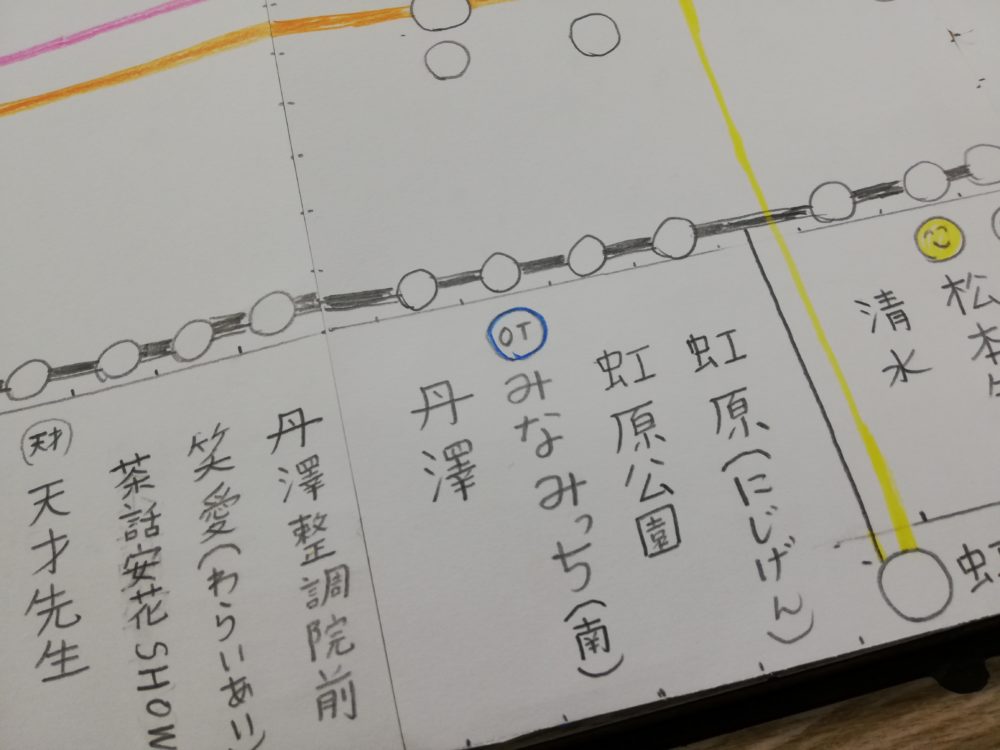 天才
天才先生
茶話安花SHOW
笑愛(わらいあい)
丹澤整調院前
丹澤
OT
みなみっち(南)
虹原公園
虹原(にじげん)
清水
松本
虹